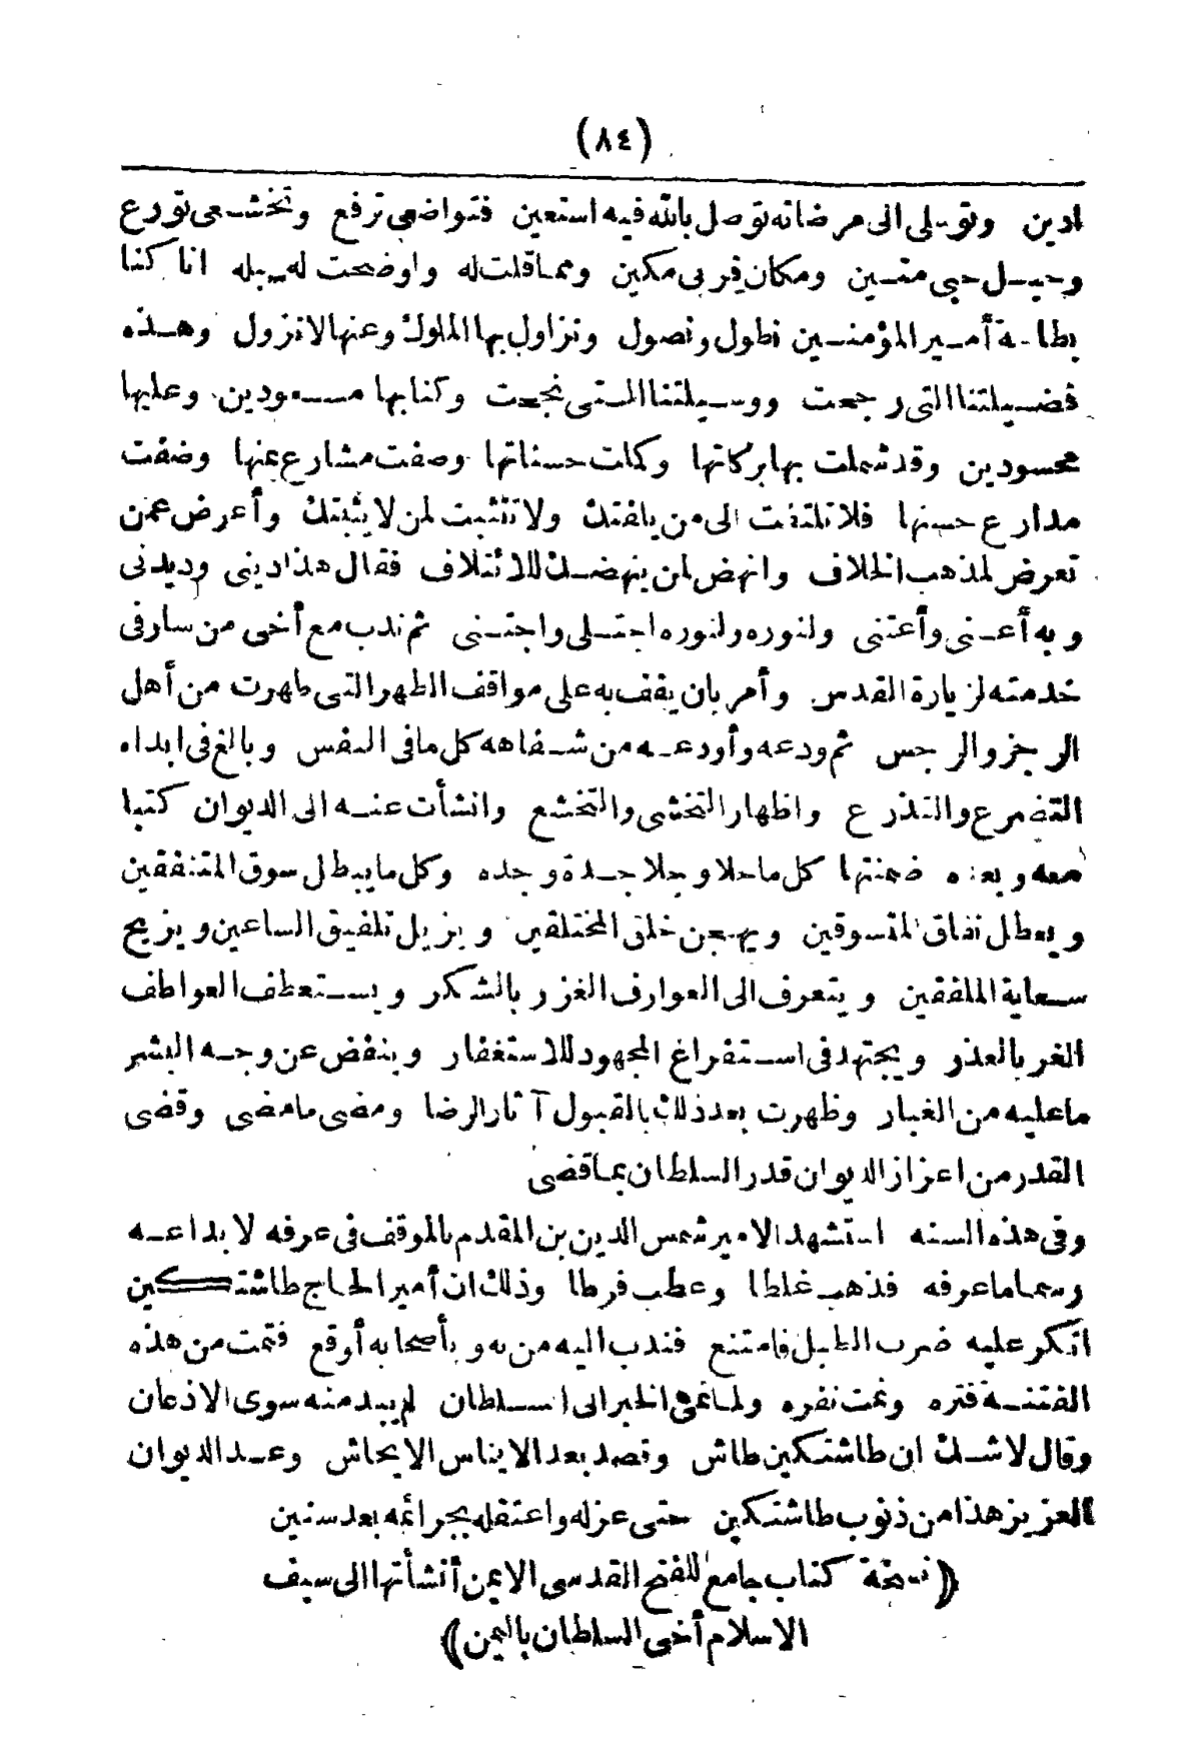 (٨٤)
ادين وتوسلى الى مرضاته توصل بالله فيه استعين فتواضعى ترفع وتخشعى تورع
وحبل حبى متين ومكان قربى مكين ومما قلت له واوضحت له سبله اننا كنا
بطاعة أمير المؤمنين نطول ونصول ونزاول بها الملوك وعنها لا نزول وهذه
فضيلتنا التى رجحت ووسيلتنا التى نجحت وكنا بها مسعودين وعليها
محسودين وقد شملت بها بركاتها وكملت حسناتها وصفت مشارع يمنها وضفت
مدارع حسنها فلا تلتفت الى من يلفتك ولا تثبت لمن لا يثبتك وأعرض عمن
تعرض لمذهب الخلاف وانهض لمن ينهضك للائتلاف فقال هذا دينى وديدنى
وبه أعنى وأعتنى ولنوره ولنوره اجتلى واجتنى ثم ندب مع أخى من سار فى
خدمته لزيارة القدس وأمر بان يقف به على مواقف الطهر التى طهرت من أهل
الرجز والرجس ثم ودعه وأودعه من شفاهه كل ما فى النفس وبالغ فى ابداء
التضرع والتذرع واظهار التخشى والتخشع وانشأت عنه الى الديوان كتبا
معه وبعده ضمنتها كل ما حلا وجلا جدة وجده وكل ما يبطل سوق المتنفقين
ويعطل نفاق المتسوقين ويهجن خلق المختلقين ويزيل تلفيق الساعين ويزيح
سعاية الملفقين ويتعرف الى العوارف الغزر بالشكر ويستعطف العواطف
الغر بالعذر ويجتهد فى استفراغ المجهود للاستغفار وينفض عن وجه البشر
ما عليه من الغبار وظهرت بعد ذلك بالقبول آثار الرضا ومضى ما مضى وقضى
القدر من اعزاز الديوان قدر السلطان بما قضى
وفى هذه السنه استشهد الامير شمس الدين بن المقدم بالموقف فى عرفه لابداعه
رسما ما عرفه فذهب غلطا وعطب فرطا وذلك ان أمير الحاج طاشتكين
انكر عليه ضرب الطبل فامتنع فندب اليه من به وبأصحابه أوقع فتمت من هذه
الفتنة فتره وتمت نفره ولما نمى الخبر الى السلطان لم يبد منه سوى الاذعان
وقال لا شك ان طاشتكين طاش وقصد بعد الايناس الايحاش وعد الديوان
العزيز هذا من ذنوب طاشتكين حتى عزله واعتقله بجرائمه بعد سنين
﴿نسخة كتاب جامع للفتح القدسى الايمن أنشأتها الى سيف
الاسلام أخى السلطان باليمن﴾